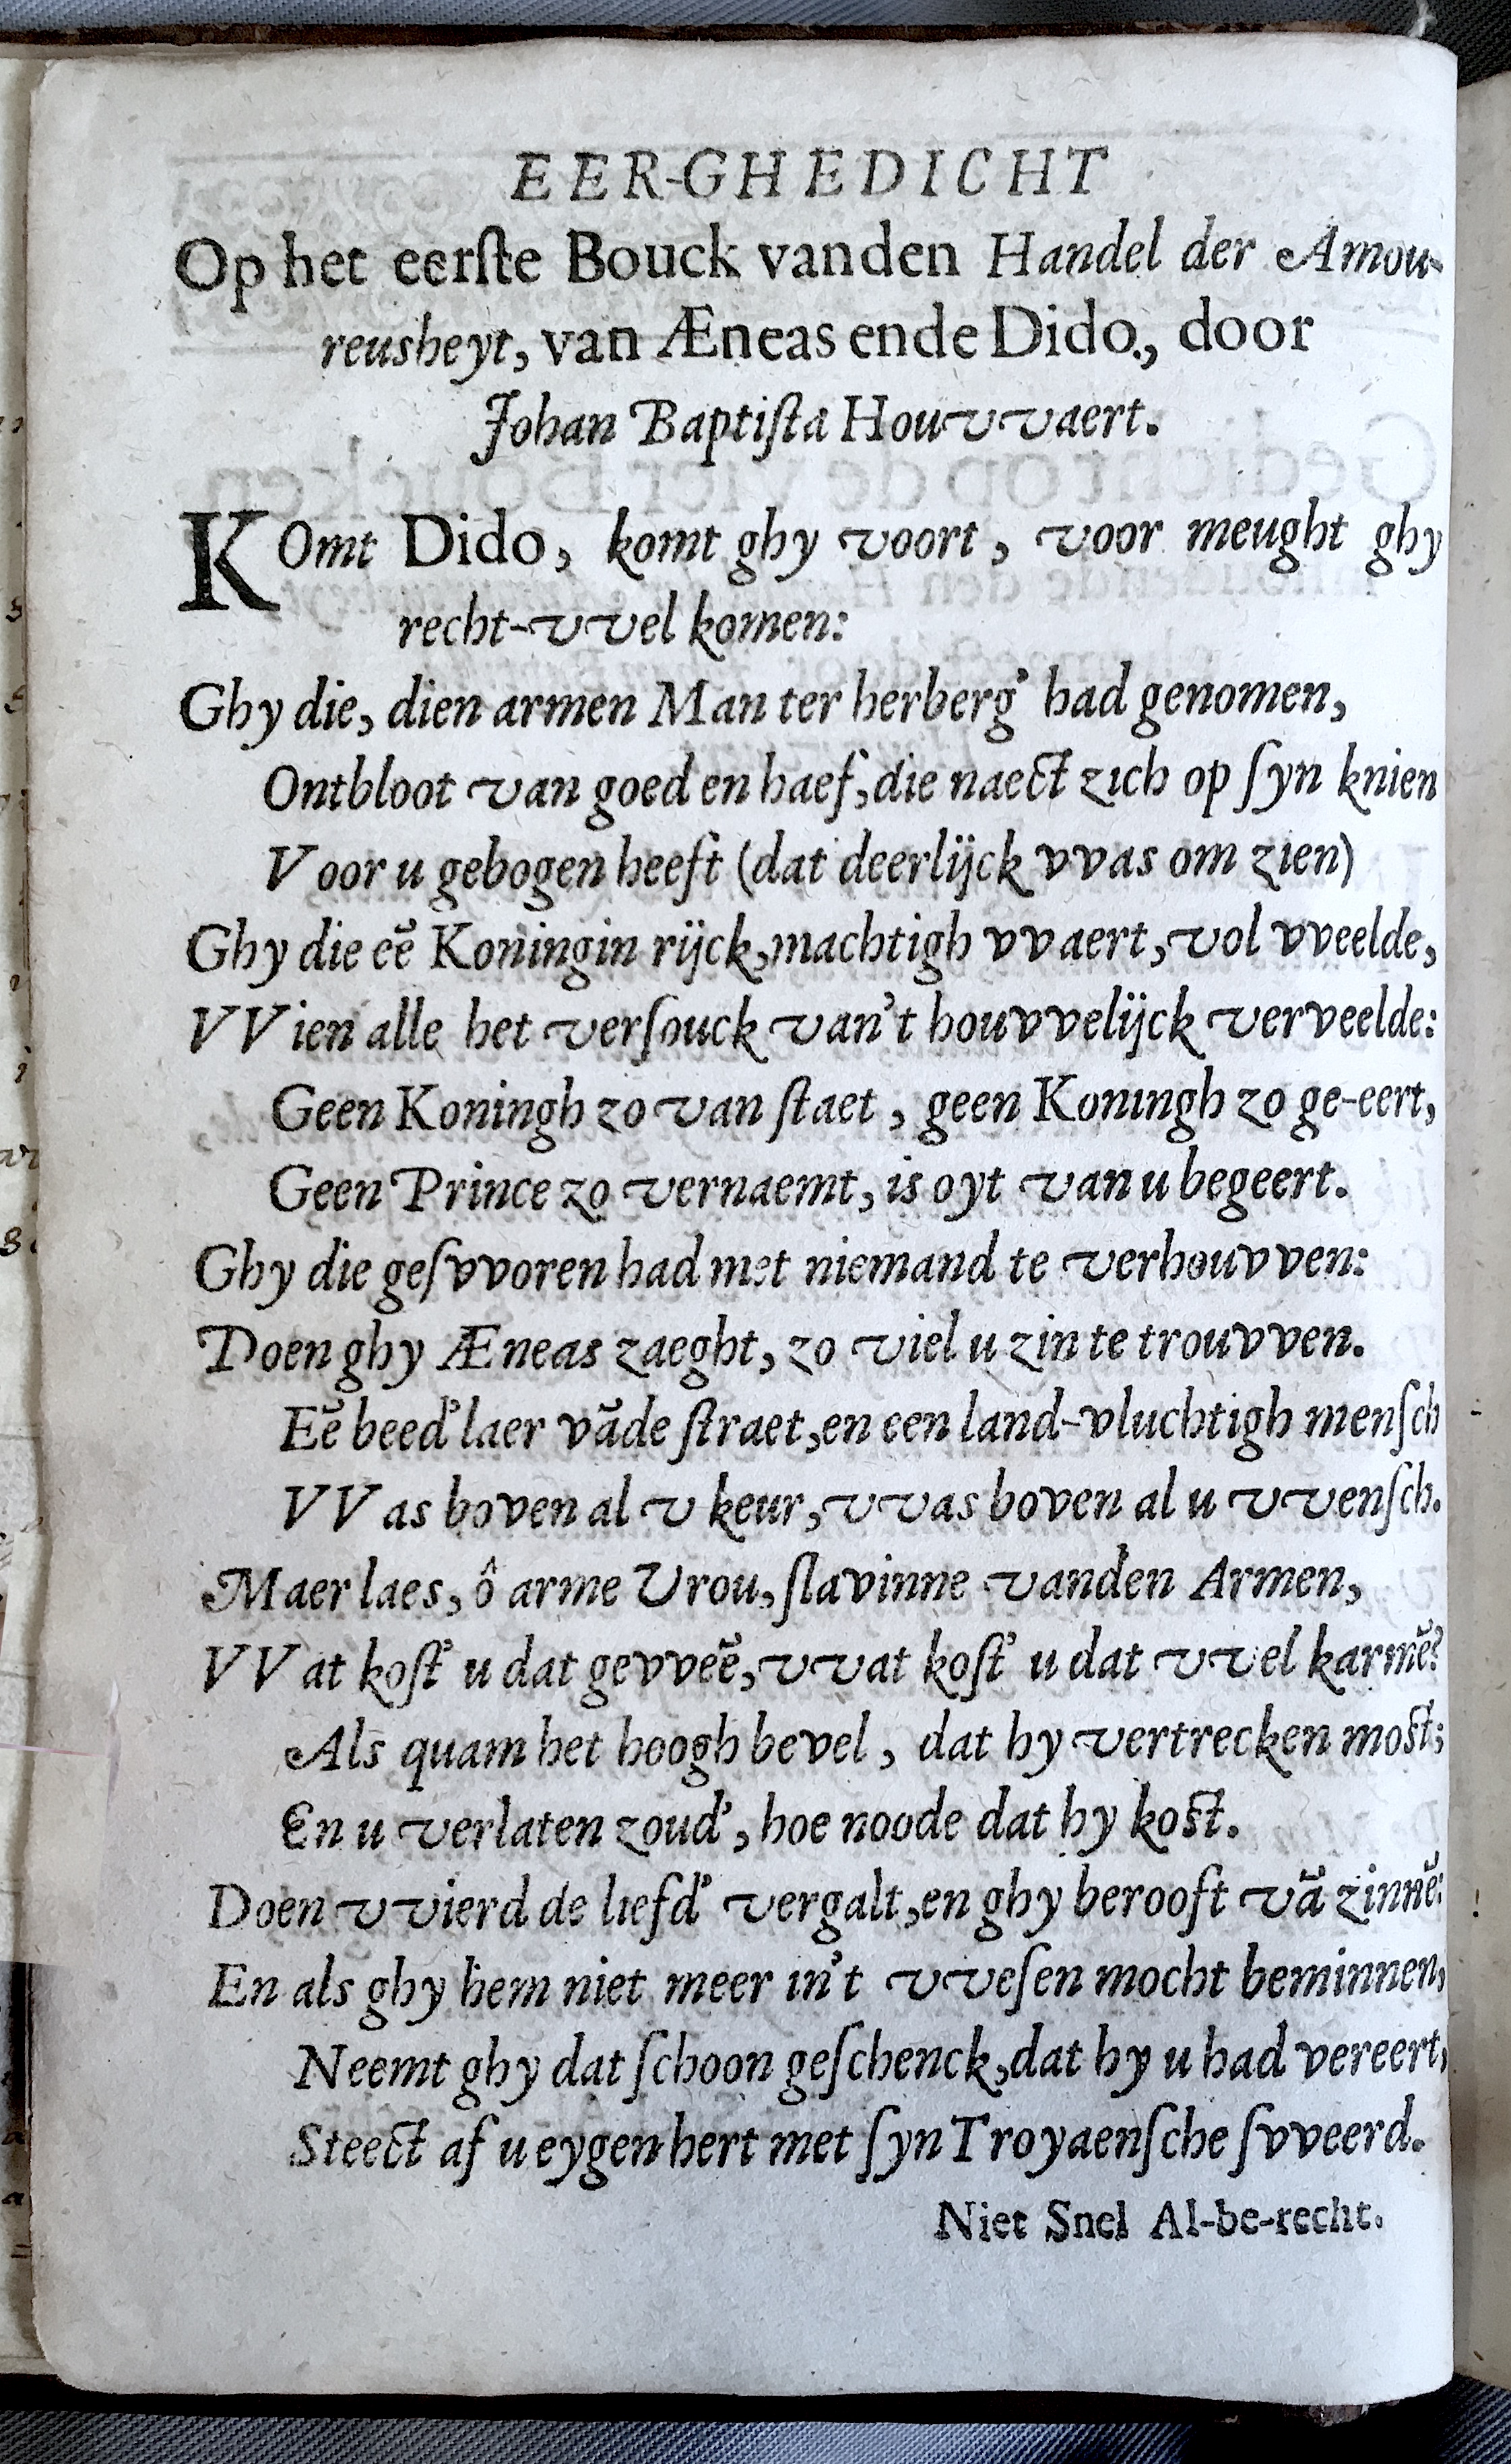 EER-GHEDICHT
Op het eerſte Bouck vanden Handel der Amou-
reusheyt, van Æneas ende Dido., door
Johan Baptiſta Houvvaert.
KOmt Dido, komt ghy voort, voor meught ghy
recht-vvel komen:
Ghy die, dien armen Man ter herberg' had genomen,
Ontbloot van goed en haef, die naect zich op ſyn knien
Voor u gebogen heeft (dat deerlijck vvas om zien)
Ghy die eẽ Koningin rijck, machtigh vvaert, vol vveelde,
VVien alle het verſouck van't houvvelijck verveelde:
Geen Koningh zo van ſtaet, geen Koningh zo ge-eert,
Geen Prince zo vernaemt, is oyt van u begeert.
Ghy die geſvvoren had met niemand te verhouvven:
Doen ghy Æneas zaeght, zo viel u zin te trouvven.
Eẽ beed'laer vãde ſtraet, en een land-vluchtigh menſch
VVas boven al v keur, vvas boven al u vvenſch.
Maer laes, ô arme Vrou, ſlavinne vanden Armen,
VVat koſt' u dat gevveẽ, vvat koſt' u dat vvel karmẽ?
Als quam het hoogh bevel, dat hy vertrecken most;
En u verlaten zoud', hoe noode dat hy kost.
Doen vvierd de liefd' vergalt, en ghy berooft vã zinnẽ:
En als ghy hem niet meer in't vveſen mocht beminnen,
Neemt ghy dat ſchoon geſchenck, dat hy u had vereert,
Steect af u eygen hert met ſyn Troyaenſche ſvveerd.
Niet Snel Al-be-recht.